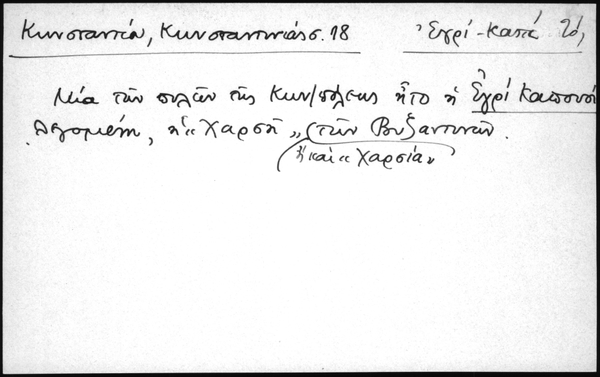 Κωνσταντίου, Κωνσταντινιάς σ. 18 Ἐγρί-καπὲ Τό,
Μία τῶν πυλῶν τῆς Κων/πόλεως ἦτο ἡ Ἐγρί Καπουσί
λεγομένη, ἡ "Χαρσῆ" (τῶν Βυζαντινῶν.
ἢ καὶ "Χαρσία"